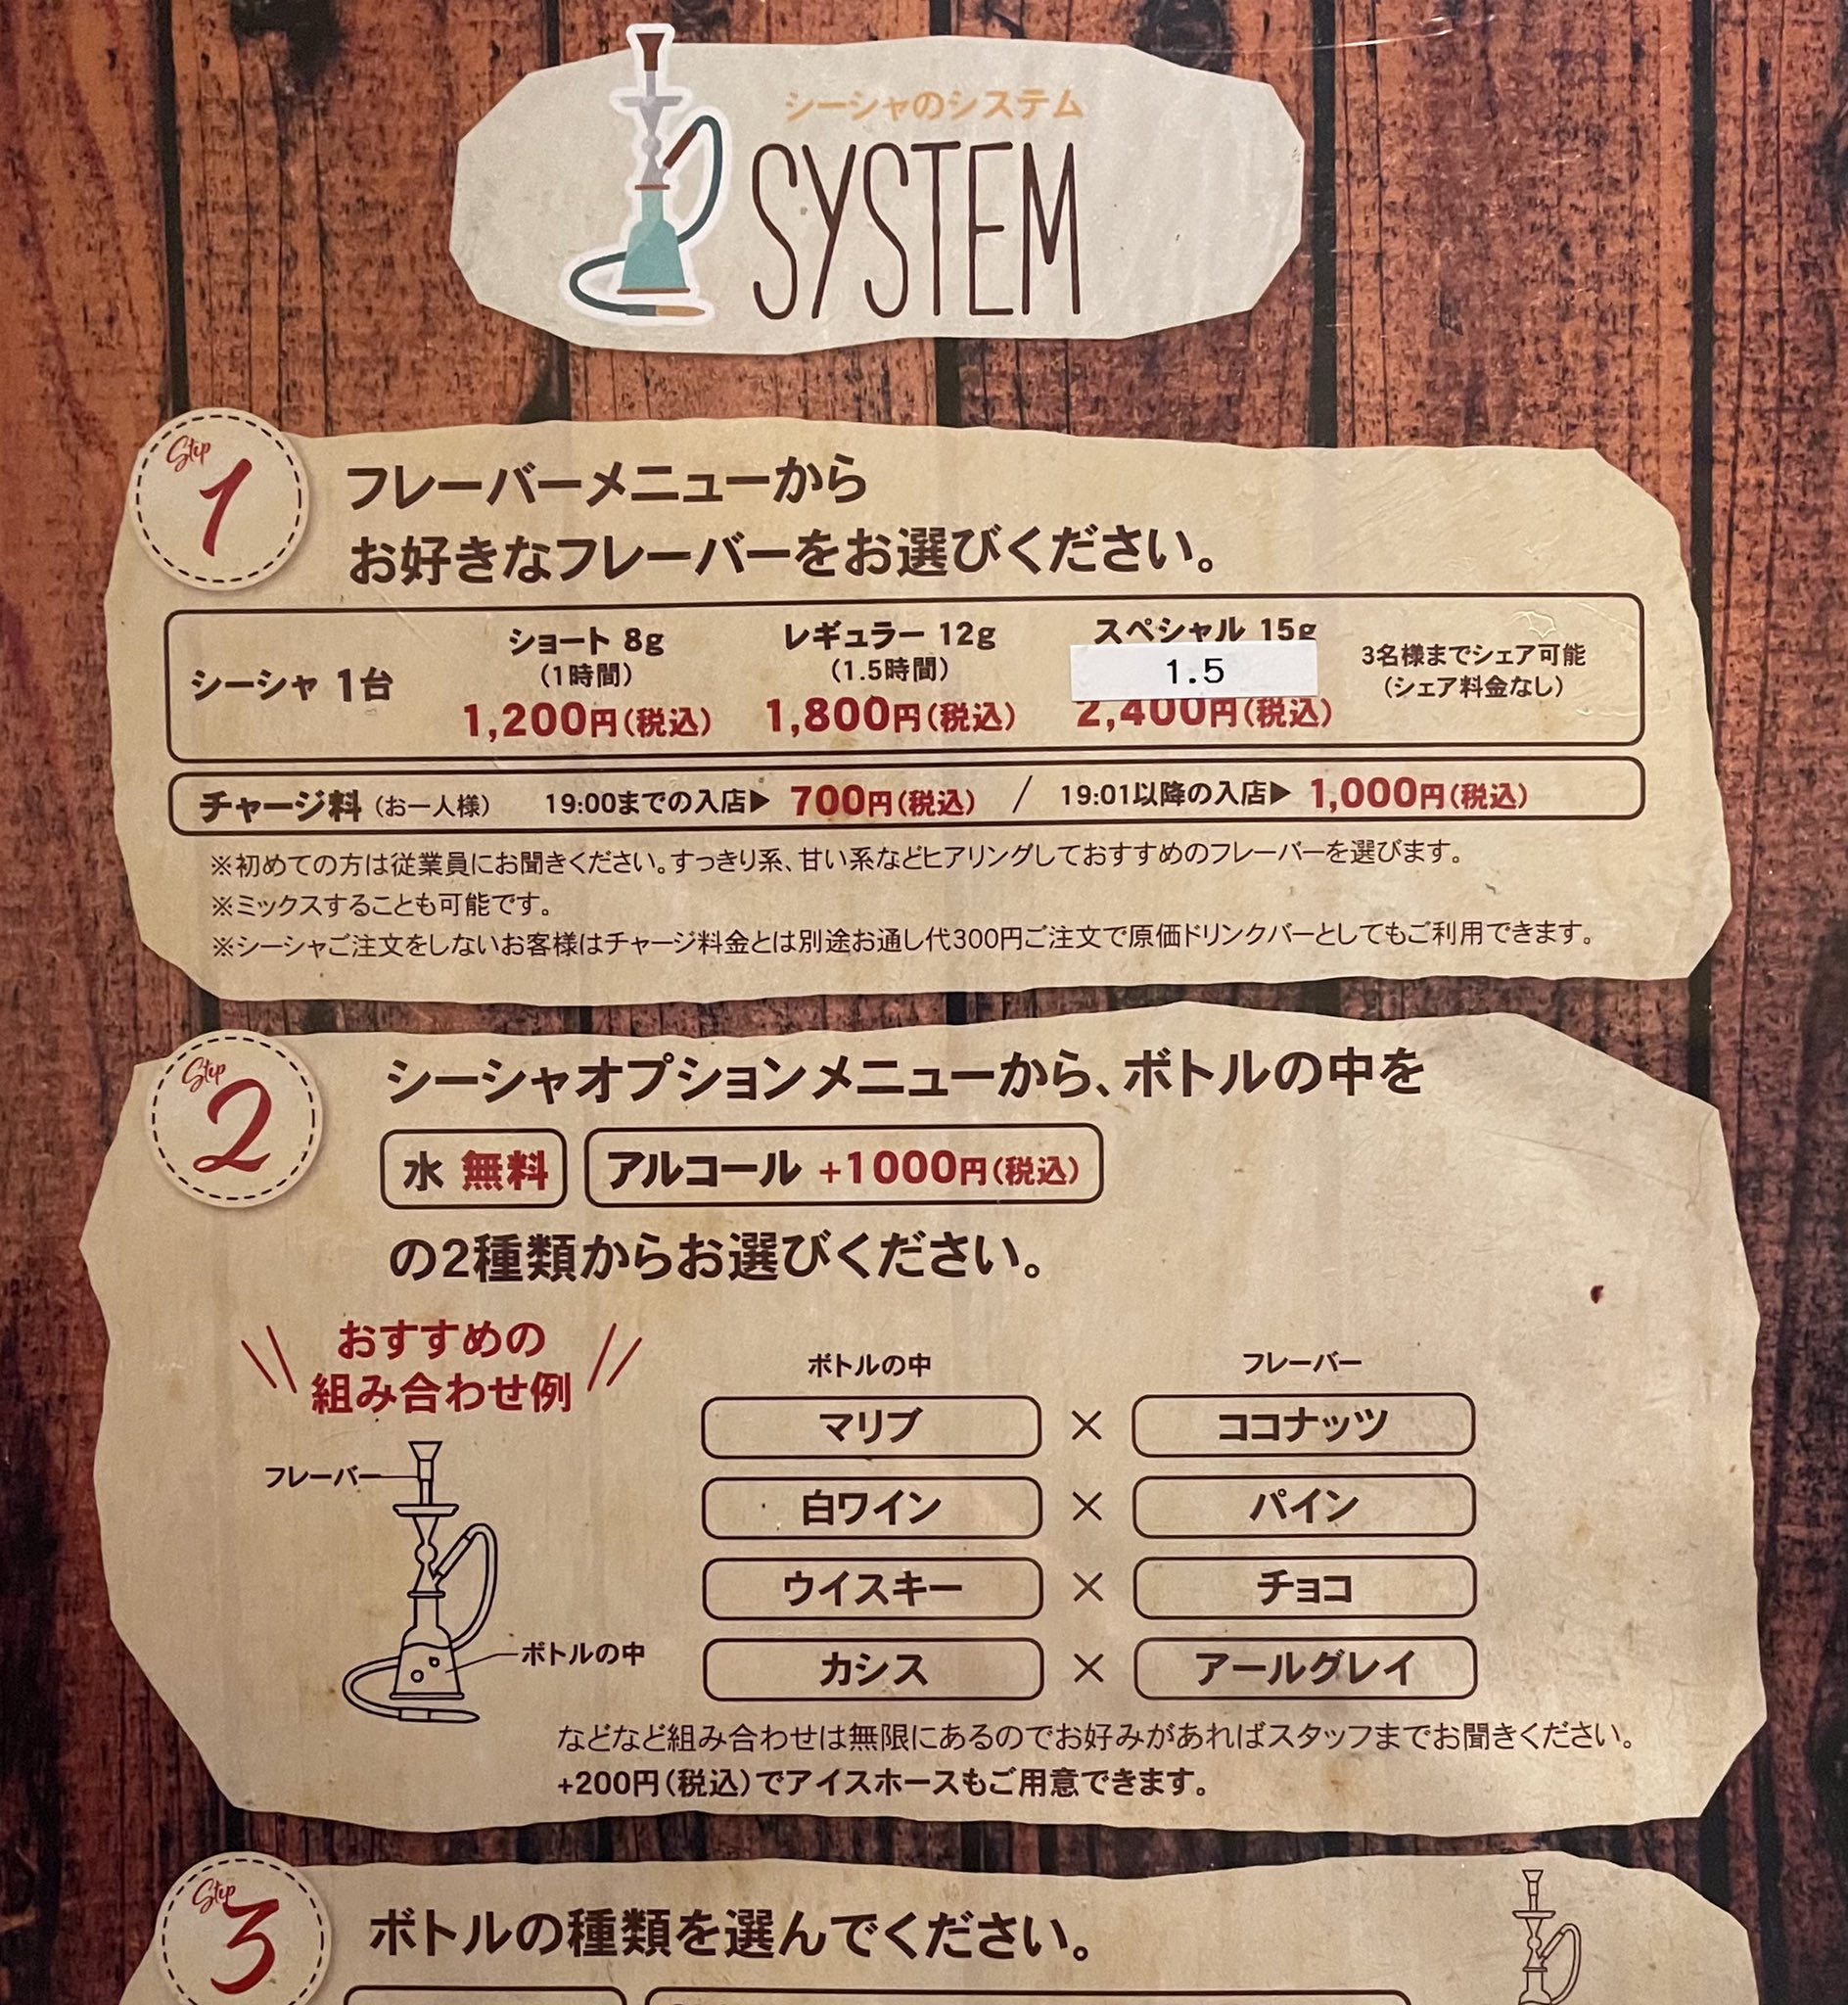 シーシャのシステム
SYSTEM
Step
1
フレーバーメニューから
お好きなフレーバーをお選びください。
シーシャ 1台
ショート 8g
(1時間)
1,200円(税込)
レギュラー 12g
(1.5時間)
1,800円(税込)
スペシャル 15g
1.5
2,400円(税込)
3名様までシェア可能
(シェア料金なし)
チャージ料 (お一人様) 19:00までの入店▶ 700円(税込) / 19:01以降の入店▶ 1,000円(税込)
※初めての方は従業員にお聞きください。すっきり系、甘い系などヒアリングしておすすめのフレーバーを選びます。
※ミックスすることも可能です。
※シーシャご注文をしないお客様はチャージ料金とは別途お通し代300円ご注文で原価ドリンクバーとしてもご利用できます。
Step
2
シーシャオプションメニューから、ボトルの中を
水 無料 アルコール +1000円(税込)
の2種類からお選びください。
おすすめの
組み合わせ例
フレーバー
ボトルの中
ボトルの中 フレーバー
マリブ × ココナッツ
白ワイン × パイン
ウイスキー × チョコ
カシス × アールグレイ
などなど組み合わせは無限にあるのでお好みがあればスタッフまでお聞きください。
+200円(税込)でアイスホースもご用意できます。
Step
3
ボトルの種類を選んでください。